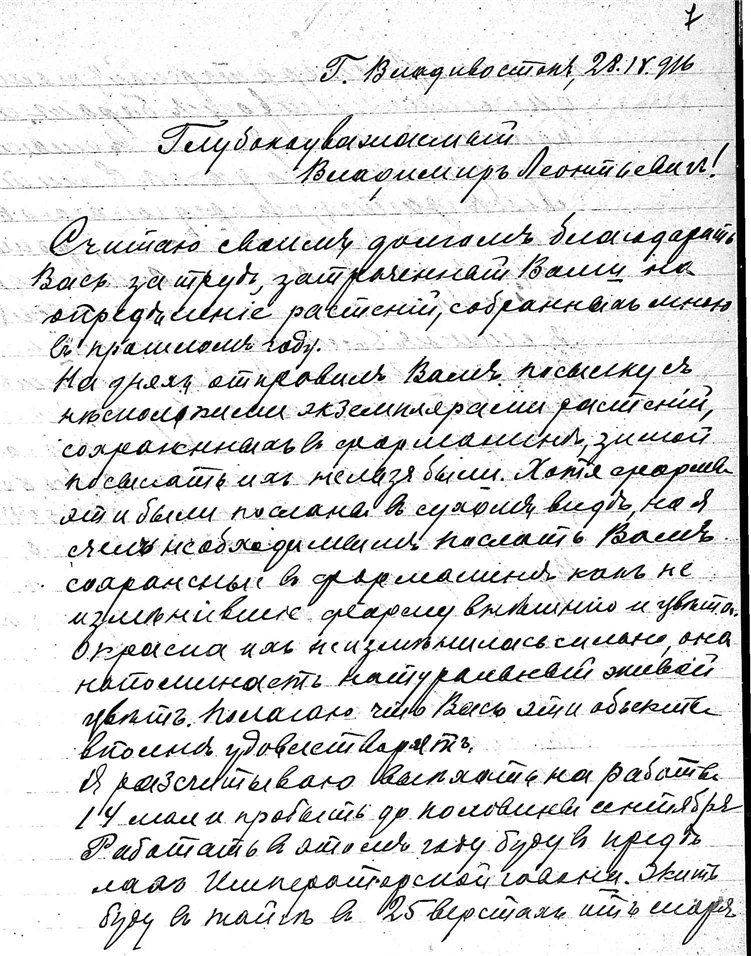 7
Г. Владивостокъ, 28.IV.916
Глубокоуважаемый
Владимиръ Леонтьевичъ!
Считаю своимъ долгомъ благодарить
Васъ за трудъ, затраченный Вами на
опредѣленіе растеній, собранныхъ мною
въ прошломъ году.
На дняхъ отправилъ Вамъ посылку съ
нѣсколькими экземплярами растеній,
сохраненныхъ въ формалинѣ, зимой
посылать ихъ нельзя было. Хотя формы
эти были посланы въ сухомъ видѣ, но я
счелъ необходимымъ послать Вамъ
сохраненные въ формалинѣ какъ не
измѣнившіе форму внѣшнюю и цвѣта.
Окраска ихъ не измѣнилась сильно, она
напоминаетъ натуральный живой
цвѣтъ. Полагаю что Васъ эти объекты
вполнѣ удовлетворятъ.
Я разсчитываю выѣхать на работы
14 мая и пробыть до половины сентября
Работать въ этомъ году буду въ предѣ
лахъ Императорской гавани. Жить
буду въ тайгѣ въ 25 верстахъ отъ моря